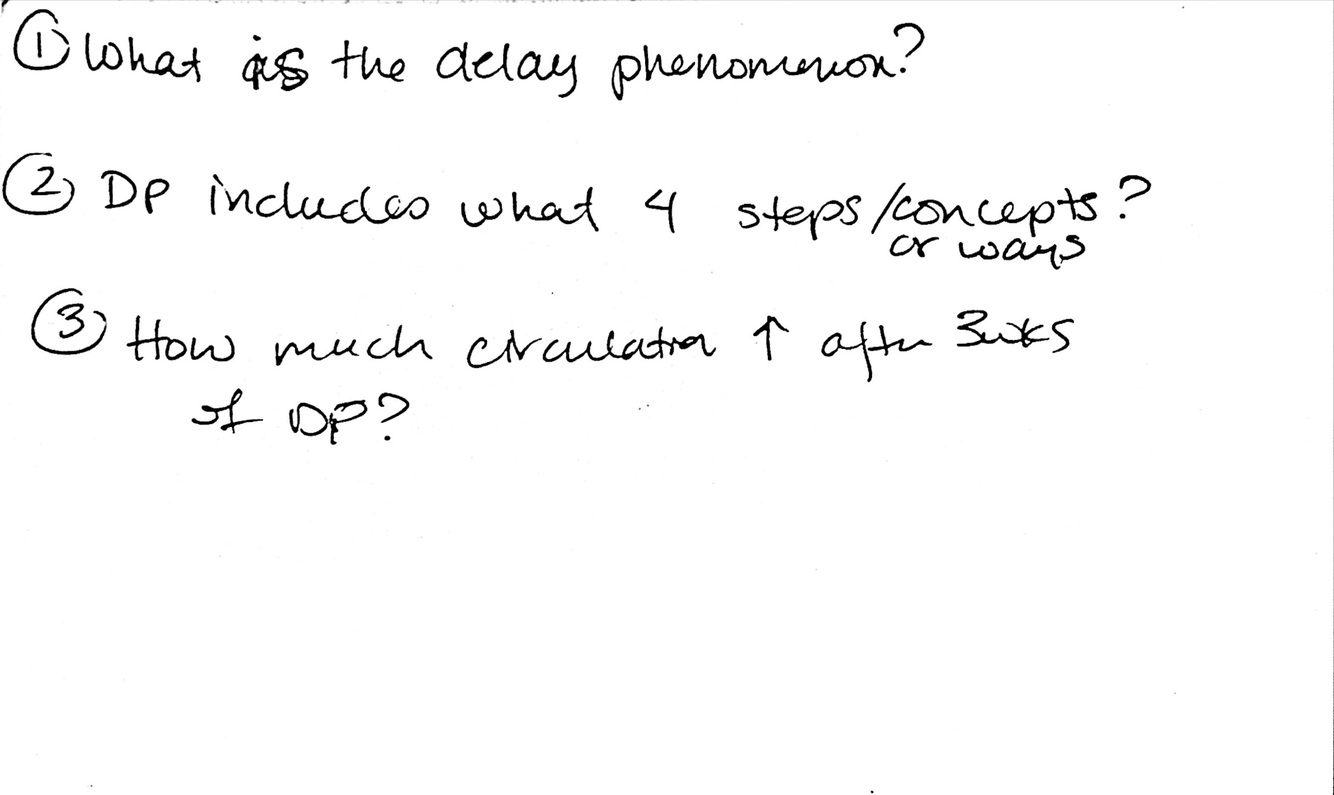 ① What is the delay phenomenon?
② DP includes what 4 steps/concepts?
or ways
③ How much circulation ↑ after 3wks
of DP?